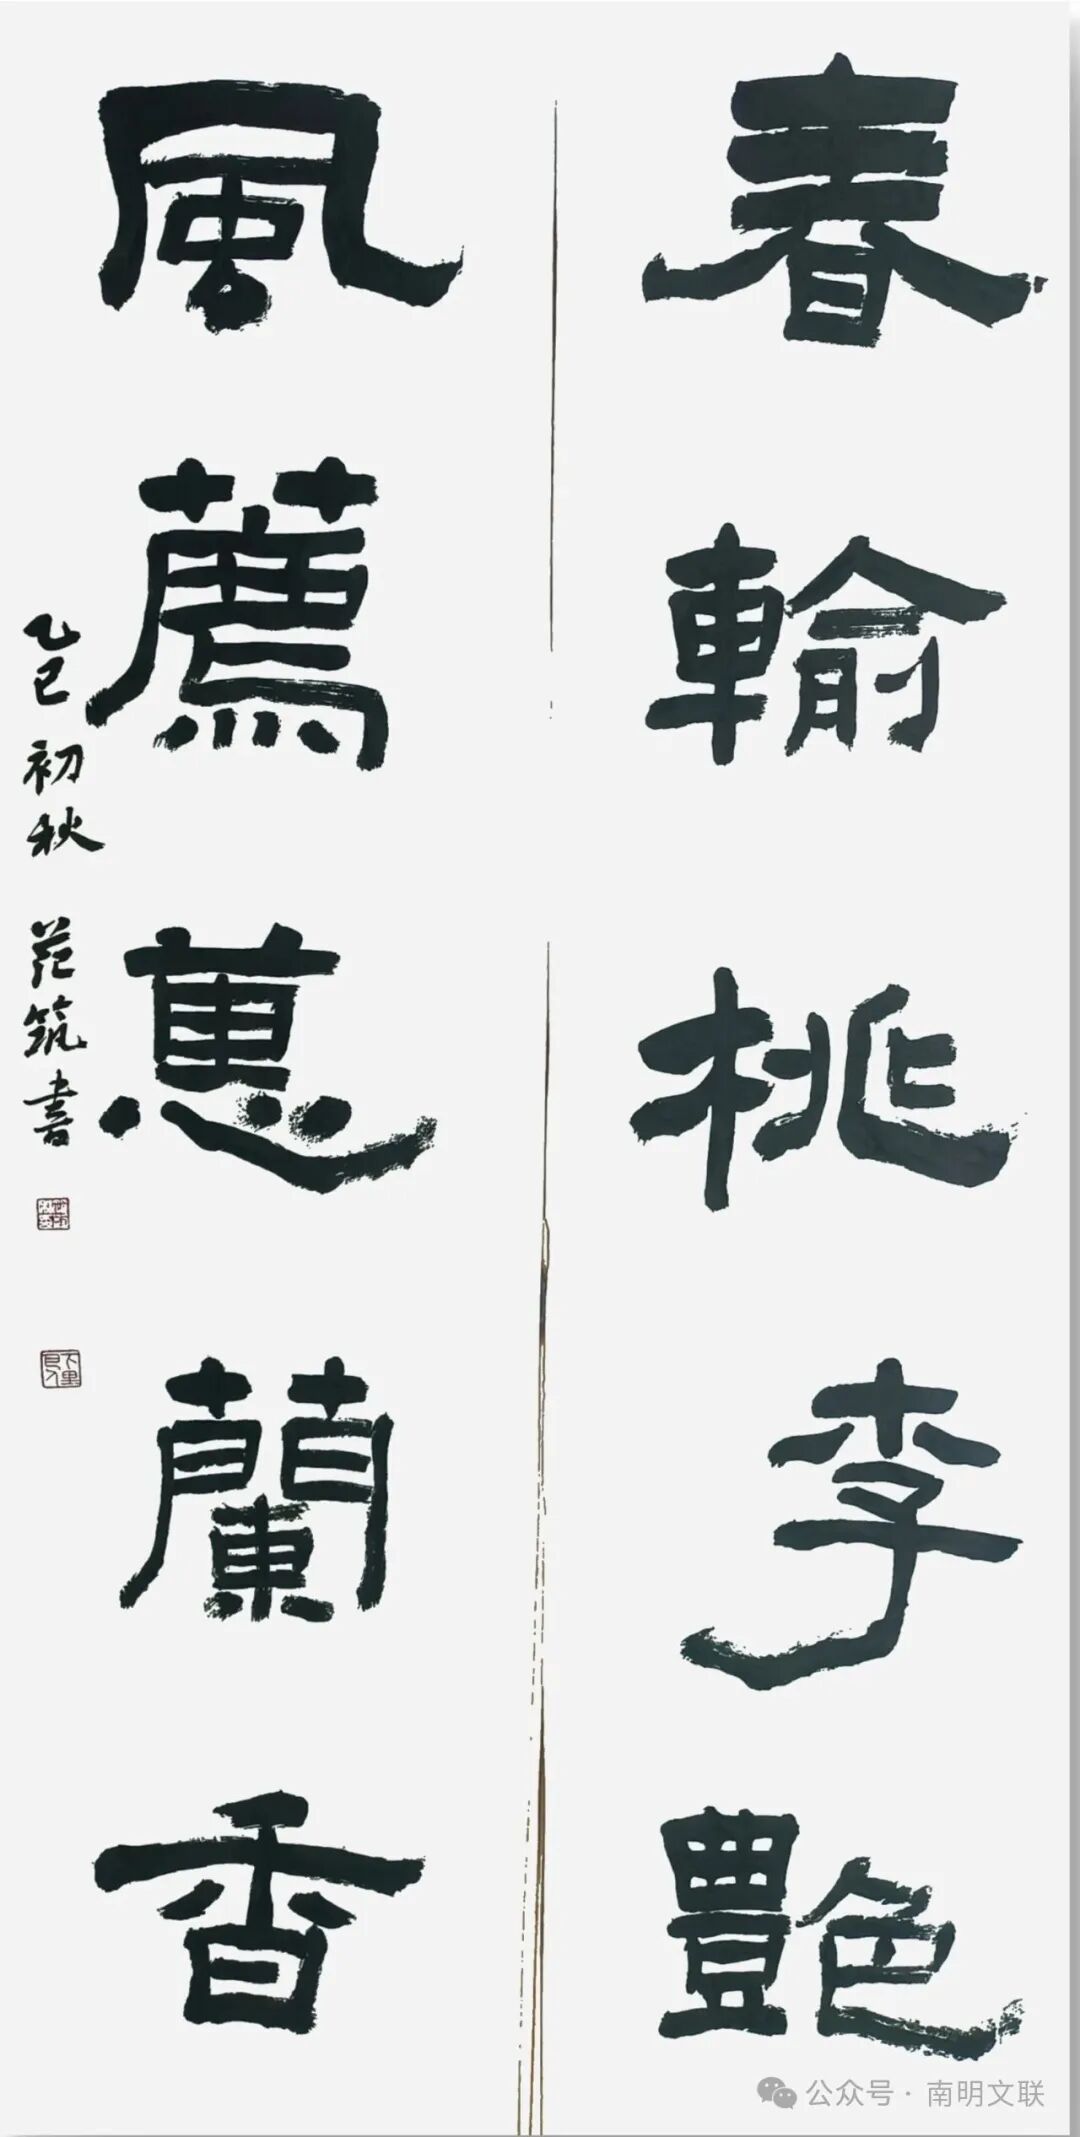 春輸桃李艷
風薦蕙蘭香
乙巳初秋 范筑書
公众号·南明文联